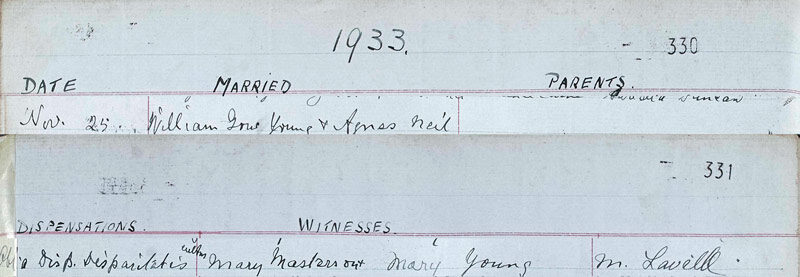 1933.
330
DATE MARRIED PARENTS.
Duncan
Nov. 25. William Gow Young & Agnes Neil
331
DISPENSATIONS. WITNESSES.
cultus
Disp. Disparitatis Mary Masterson & Mary Young M. Lavelle